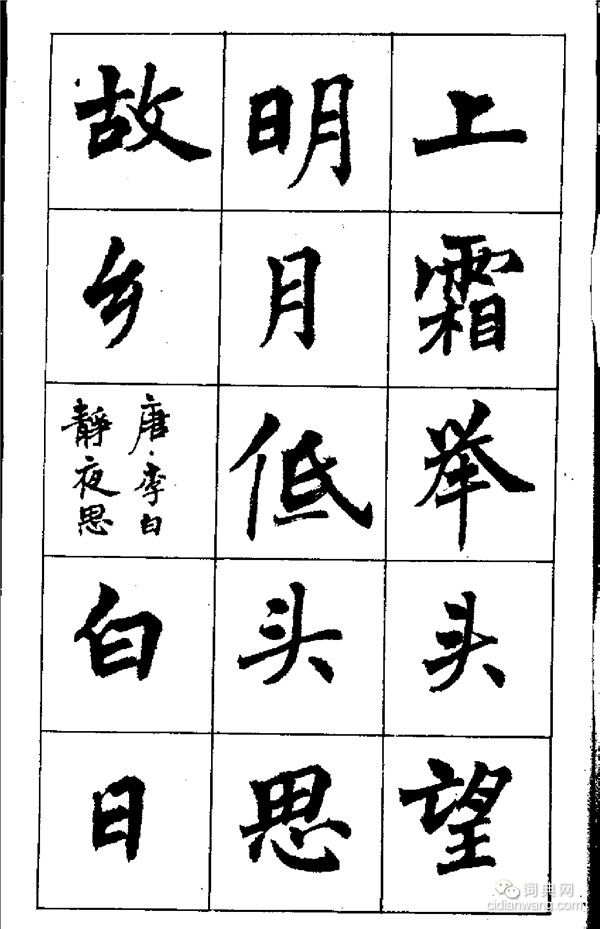 上霜举头望
明月低头思
故乡
唐·李白
静夜思
白日
词典网
cidianwang.com